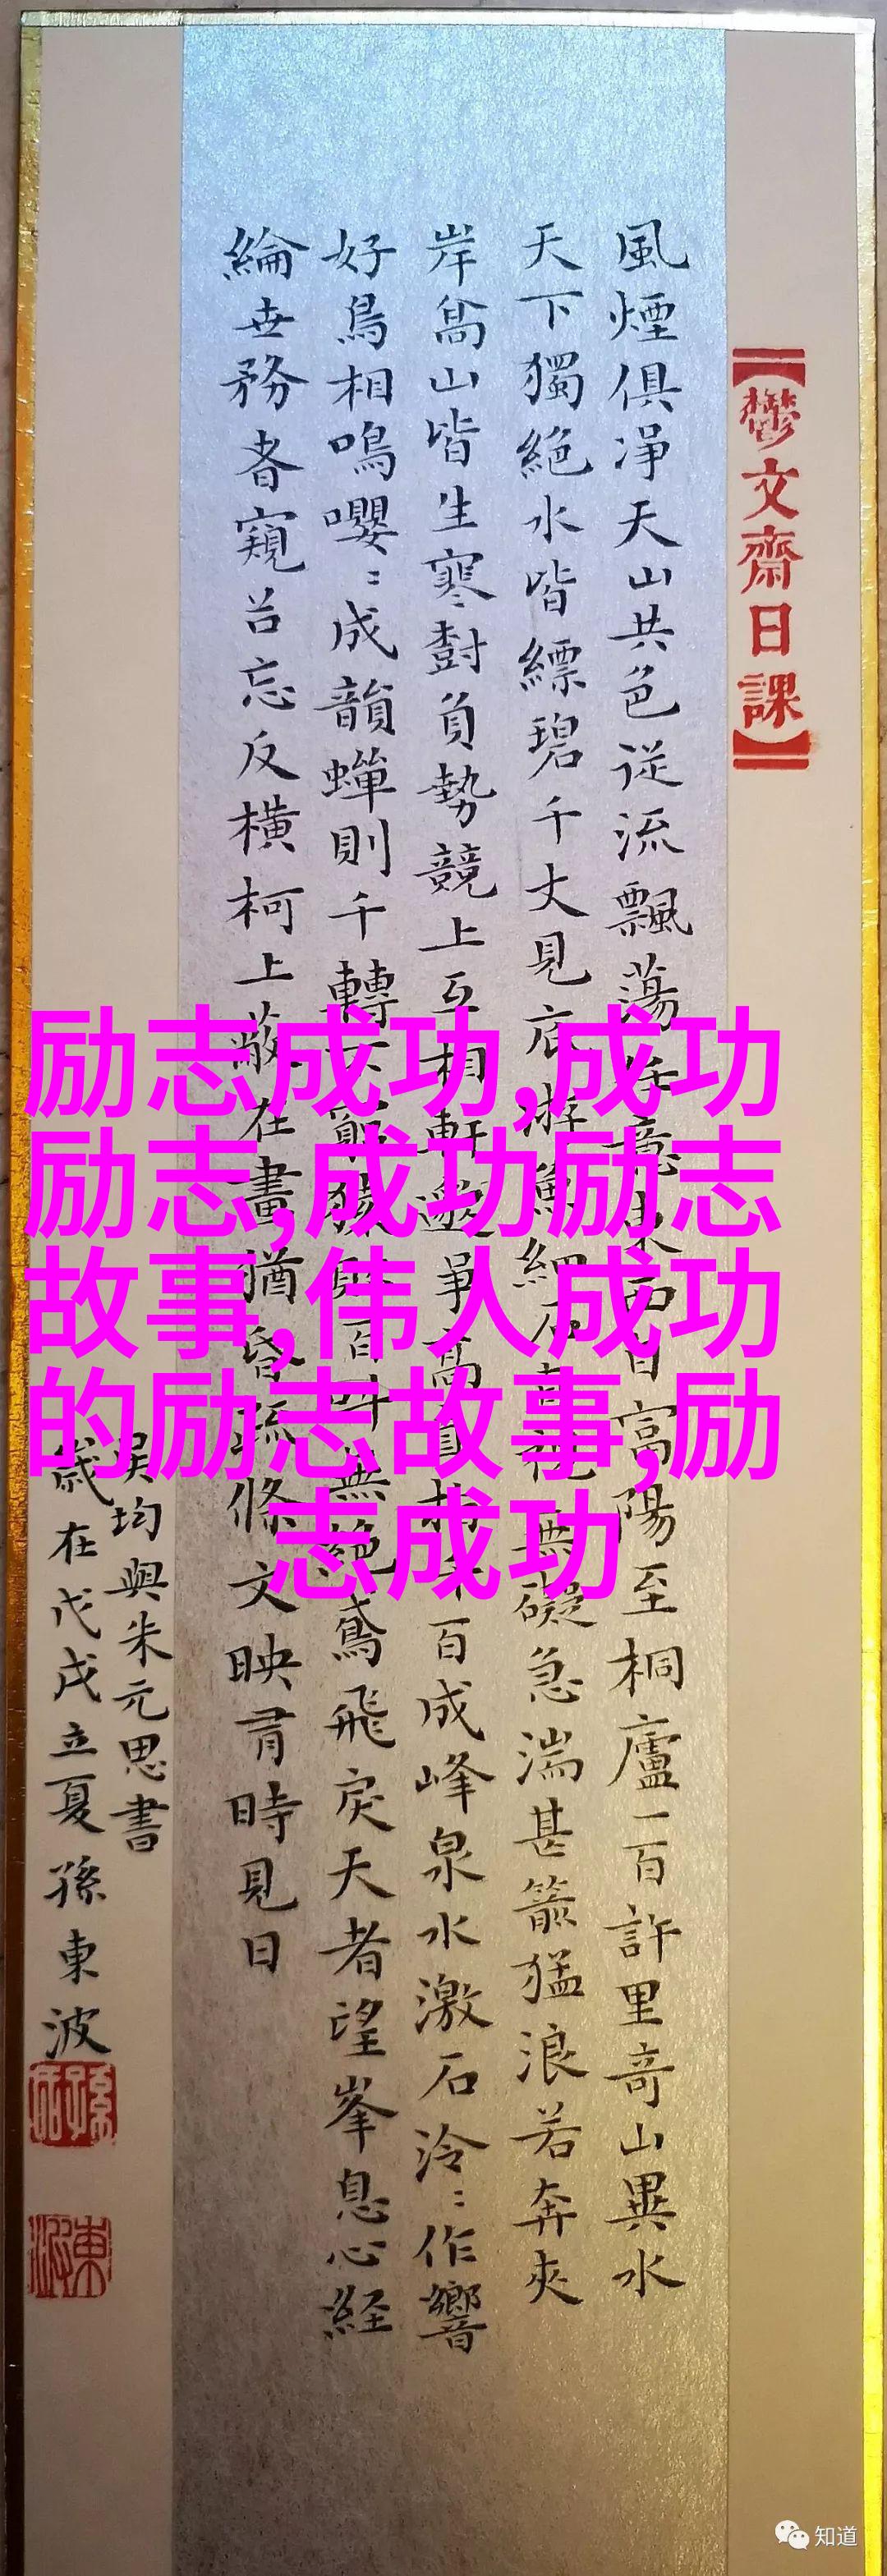 【鬱文齋日課】
風煙俱淨天山共色從流飄蕩任意東西自富陽至桐廬一百許里奇山異水
天下獨絕水皆縹碧千丈見底游魚細石直視無礙急湍甚箭猛浪若奔夾
岸高山皆生寒樹負勢競上互相軒邈爭高直指千百成峰泉水激石泠〻作響
好鳥相鳴嚶〻成韻蟬則千轉不窮猿則百叫無絕鳶飛戾天者望峯息心經
綸世務者窺谷忘反橫柯上蔽在晝猶昏疏條交映有時見日
吳均與朱元思書
歲在戊戌立夏孫東波
励志成功,成功
励志,成功励志
故事,伟人成功
的励志故事,励
志成功
知道